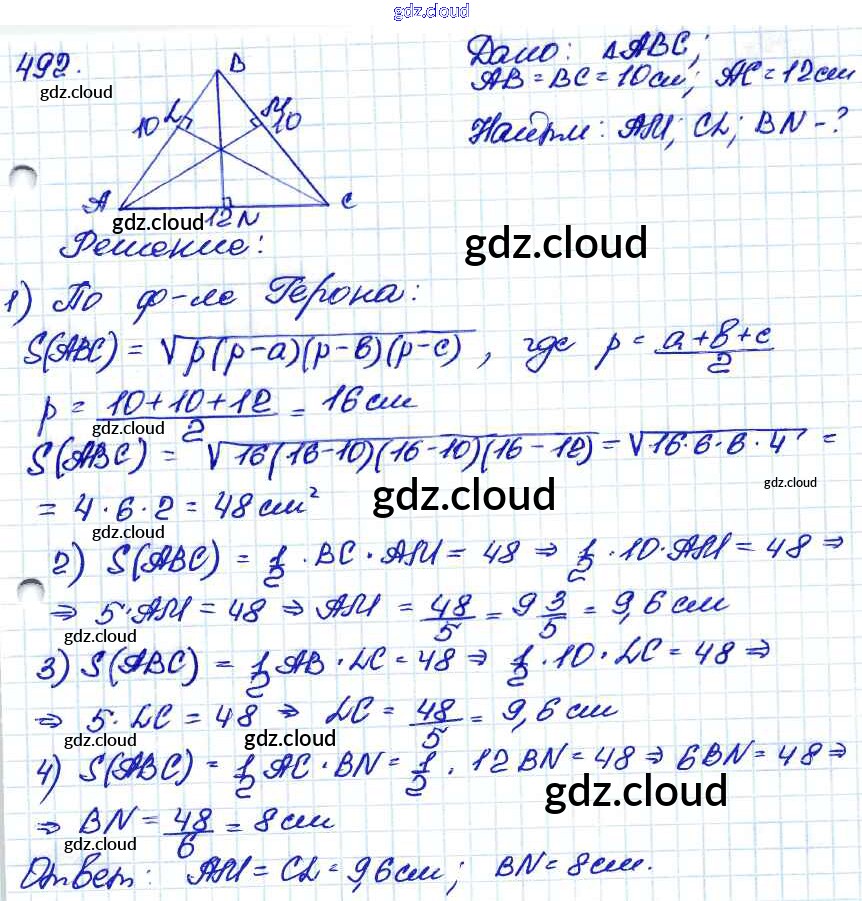 gdz.cloud
492.
gdz.cloud
Дано: ΔABC;
AB = BC = 10 см; AC = 12 см
Найти: AM; CL; BN - ?
B
10 L
M
10
A
C
gdz.cloud
12 N
Решение:
gdz.cloud
1) По ф-ле Герона:
S(ABC) = √p(p-a)(p-b)(p-c), где p = (a+b+c)/2
p = (10+10+12)/2 = 16 см
gdz.cloud
S(ABC) = √16(16-10)(16-10)(16-12) = √16·6·6·4 =
gdz.cloud
gdz.cloud
= 4·6·2 = 48 см²
gdz.cloud
2) S(ABC) = 1/2 · BC · AM = 48 ⇒ 1/2 · 10 · AM = 48 ⇒
⇒ 5·AM = 48 ⇒ AM = 48/5 = 9 3/5 = 9,6 см
gdz.cloud
3) S(ABC) = 1/2 AB · LC = 48 ⇒ 1/2 · 10 · LC = 48 ⇒
⇒ 5·LC = 48 ⇒ LC = 48/5 = 9,6 см
gdz.cloud
gdz.cloud
4) S(ABC) = 1/2 AC · BN = 1/2 · 12 BN = 48 ⇒ 6BN = 48 ⇒
gdz.cloud
⇒ BN = 48/6 = 8 см
gdz.cloud
Ответ: AM = CL = 9,6 см; BN = 8 см.